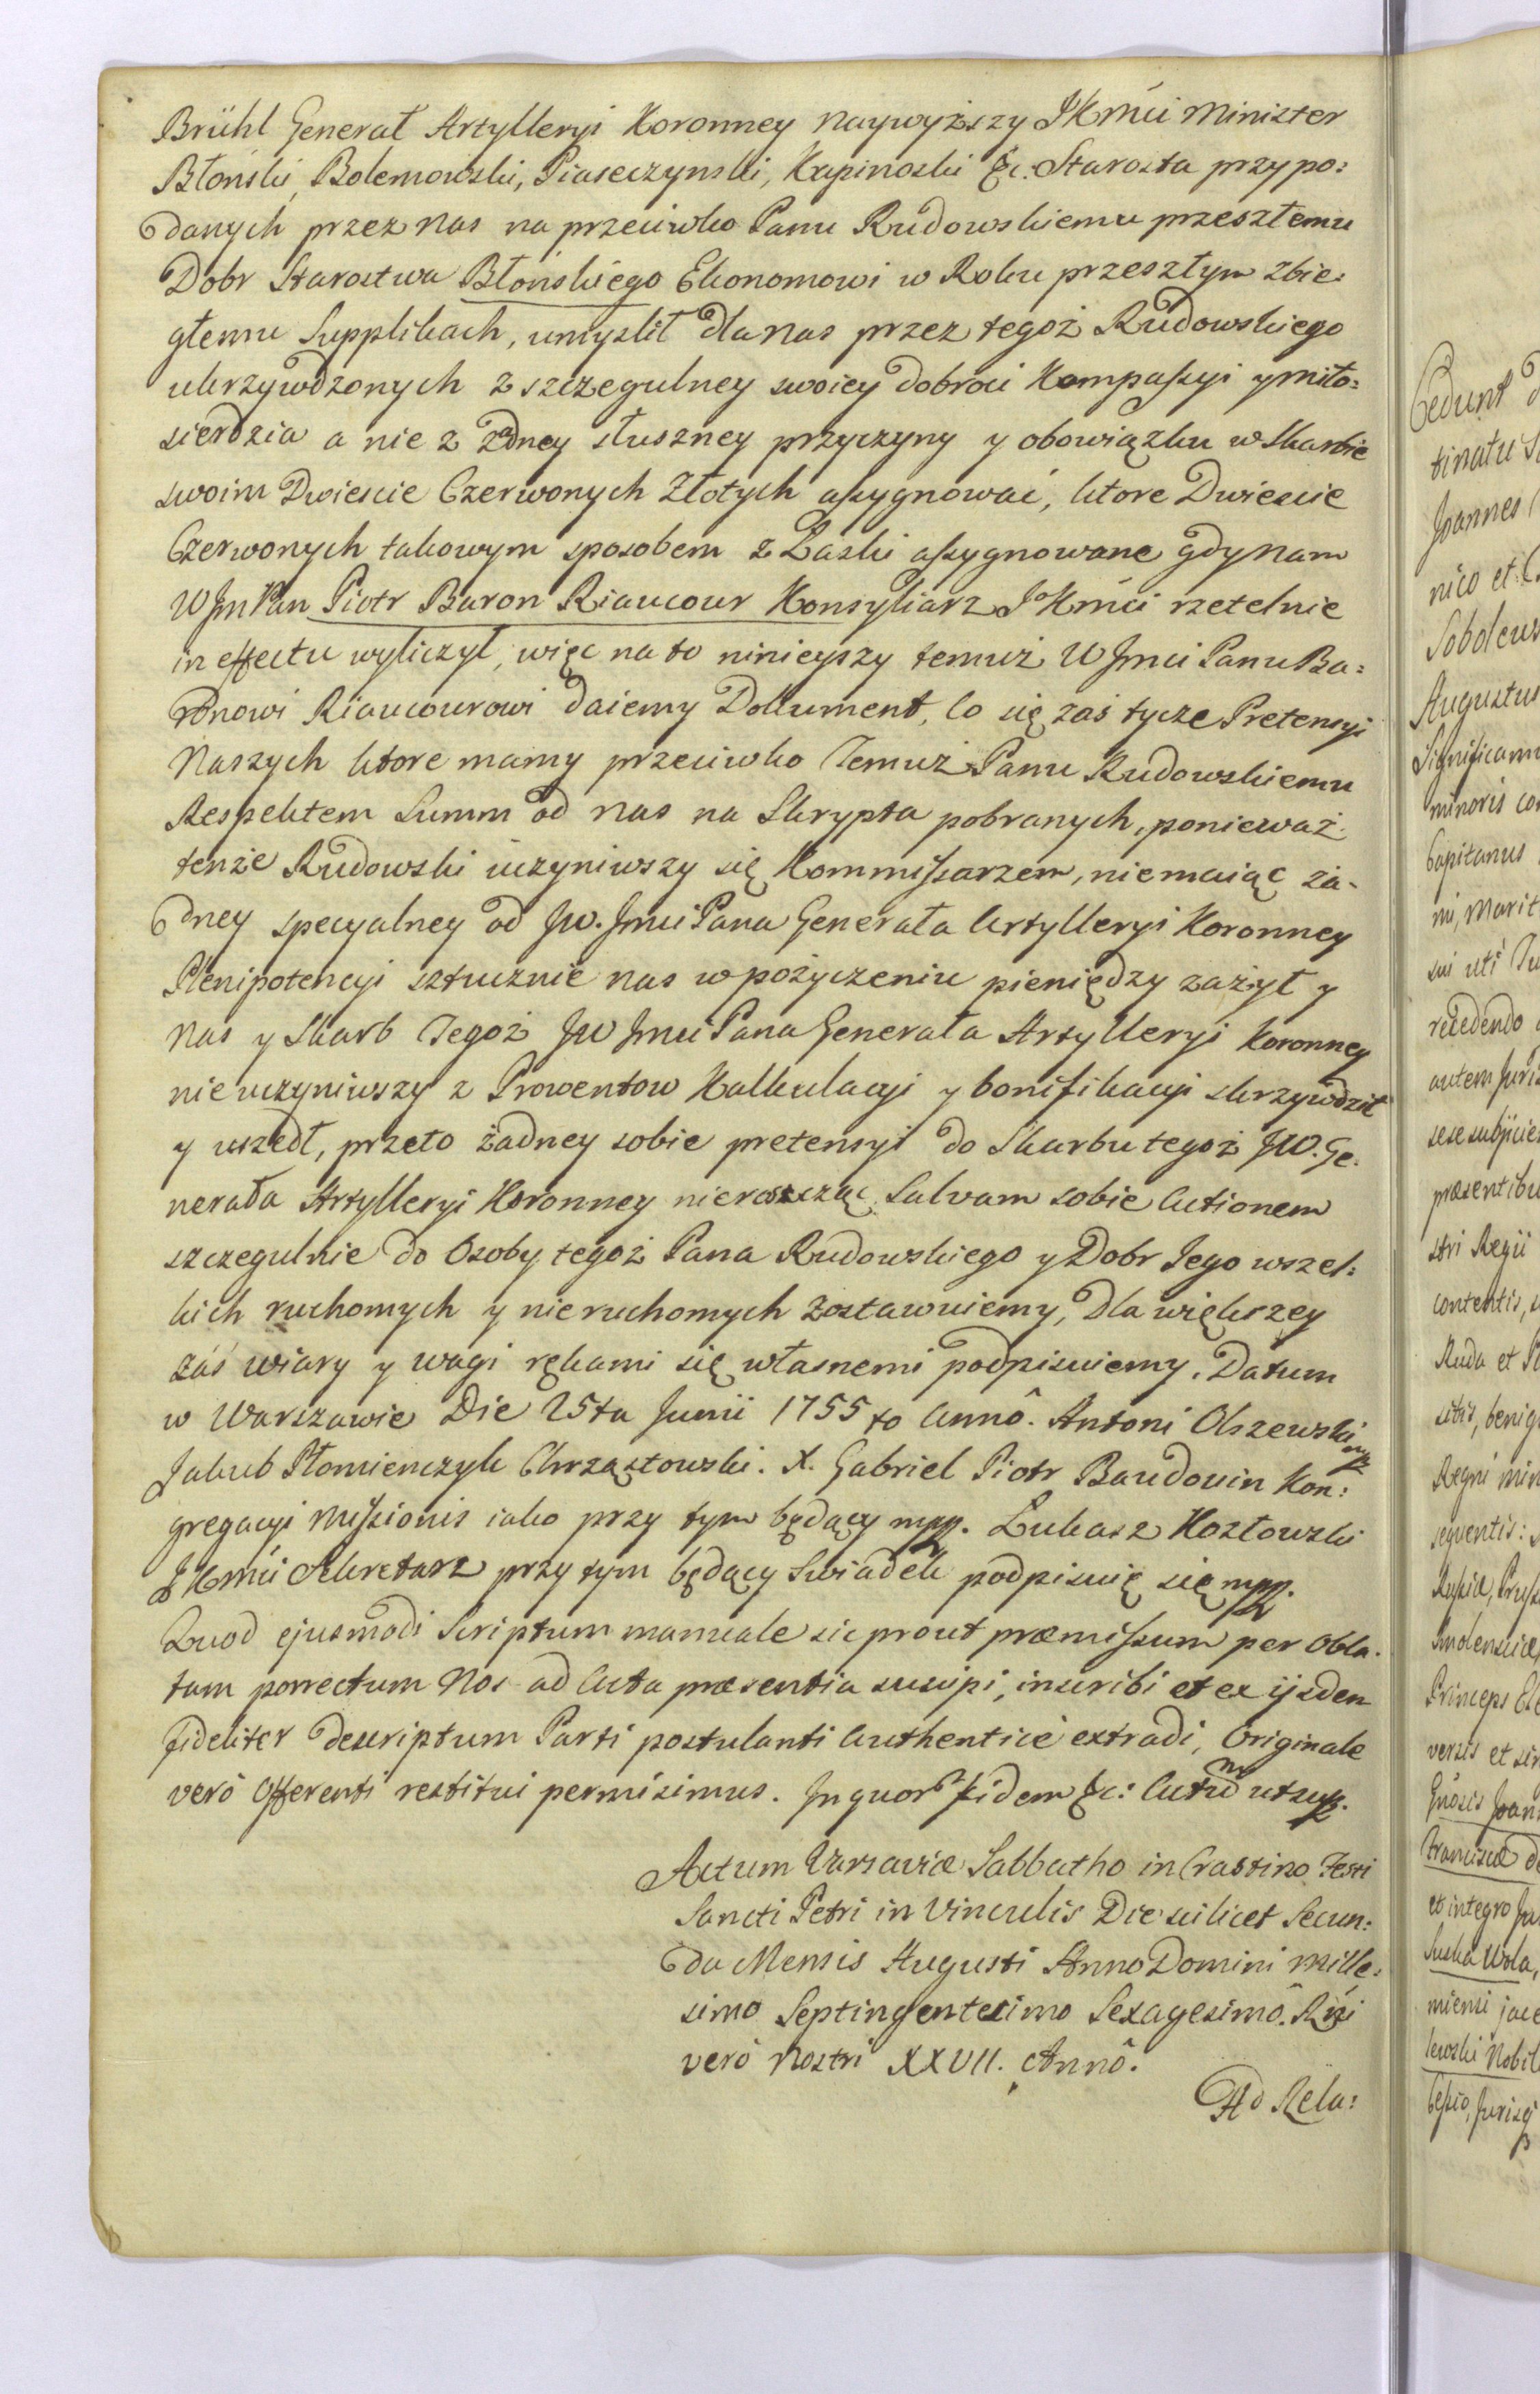 Brühl Generał Artylleryi Koronney naywyższy JKmci Minister
Błonski, Bolemowski, Piaseczynski, Kapinoski &c. Starosta przy po:
danych przez nas na przeciwko Panu Rudowskiemu przeszłemu
Dobr Starostwa Błońskiego Ekonomowi w Roku przeszłym zbie:
głemu Supplikach, umyslił dla nas przez tegoż Rudowskiego
ukrzywdzonych z szczegulney swoiey dobroci Kompassyi y miło:
sierdzia a nie z żadney słuszney przyczyny y obowiązku w Skarbie
swoim Dwiescie Czerwonych Złotych assygnować, ktore Dwiescie
Czerwonych takowym sposobem z Łaski assygnowane gdy nam
WJm Pan Piotr Baron Riaucour Konsyliarz JKmci rzetelnie
in effectu wyliczył, więc na to ninieyszy temuż WJmci Panu Ba:
ronowi Riaucourowi daiemy Dokument, Co się zaś tycze Pretensyi
Naszych ktore mamy przeciwko Temuż Panu Rudowskiemu
Respektem Summ od nas na Skrypta pobranych, ponieważ
tenże Rudowski uczyniwszy się Kommissarzem, niemaiąc ża-
dney specyalney od JW. Jmci Pana Generała Artylleryi Koronney
Plenipotencyi sztucznie nas w pożyczeniu pieniędzy zażył y
nas y Skarb Tegoż JW Jmci Pana Generała Artylleryi Koronney
nie uczyniwszy z Prowentow Kalkulacyi y bonifikacyi skrzywdził
y uszedł, przeto żadney sobie pretensyi do Skarbu tegoż JW. Ge:
nerała Artylleryi Koronney nieroszcząc Salvam sobie Actionem
szczegulnie do Osoby tegoż Pana Rudowskiego y Dobr Jego wszel:
kich ruchomych y nieruchomych zostawuiemy, Dla większey
zaś wiary y wagi rękami się własnemi podpisuiemy. Datum
w Warszawie Die 25ta Junii 1755to Annô. Antoni Olszewski mp
Jakub Płomienczyk Chrząstowski. X. Gabriel Piotr Baudouin Kon:
gregacyi Missionis iako przy tym będący mpp. Łukasz Kozłowski
JKmci Sekretarz przy tym będący Swiadek podpisuię się mpp.
Quod ejusmodi Scriptum manuale sic prout præmissum per Obla:
tam porrectum Nos ad Acta præsentia suscipi, inscribi et ex ijsdem
fideliter descriptum Parti postulanti Authenticè extradi, Originale
verò Offerenti restitui permisimus. In quor fidem &c: Actum ut sup.
Actum Varsaviæ Sabbatho in Crastino Festi
Sancti Petri in Vinculis Die scilicet Secun:
da Mensis Augusti Anno Domini Mille:
simo Septingentesimo Sexagesimô. Rgni
verò Nostri XXVII. Annô.
Ad Rela:
Cedunt
tinatu
Joannes
nico et
Augustus
minoris
Capitanus
sui uti
recedendo
autem
præsentibu
stri Regii
contentis,
Ruda et
Regni
sequentis:
Smolensciæ
Princeps
versis et
et integro
Suska Wola,
miensi
lewski Nobil